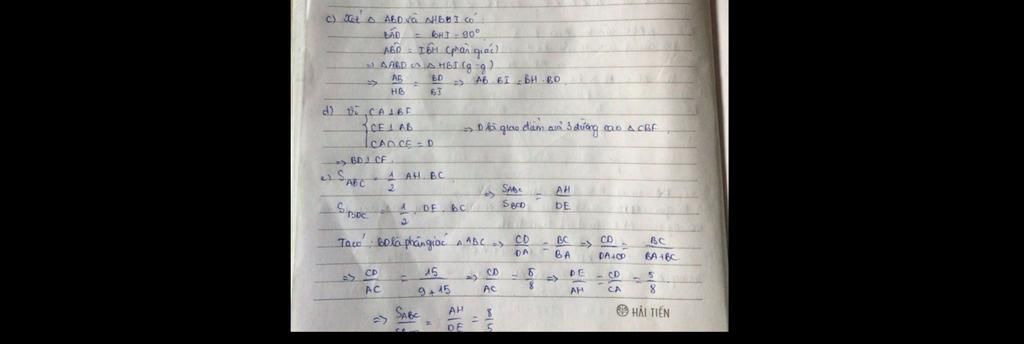 c) Xét Δ ABD và ΔHBI có:
BAD = BHI = 90°
ABD = IBH (phân giác)
⇒ ΔABD ∽ ΔHBI (g-g)
⇒ AB/HB = BD/BI ⇒ AB.BI = BH.BD.
d) Vì {CA⊥BF
CE⊥AB
CA∩CE = D
⇒ D là giao điểm của 3 đường cao ΔCBF.
⇒ BD⊥CF.
e) S_ABC = 1/2 AH.BC
S_BDC = 1/2.DE.BC
⇒ S_ABC/S_BCD = AH/DE
Ta có: BD là phân giác ΔABC ⇒ CD/DA = BC/BA ⇒ CD/DA+CD = BC/BA+BC
⇒ CD/AC = 15/9+15 ⇒ CD/AC = 5/8 ⇒ DE/AH = CD/CA = 5/8
⇒ S_ABC = AH/DE = 8/5
HẢI TIẾN